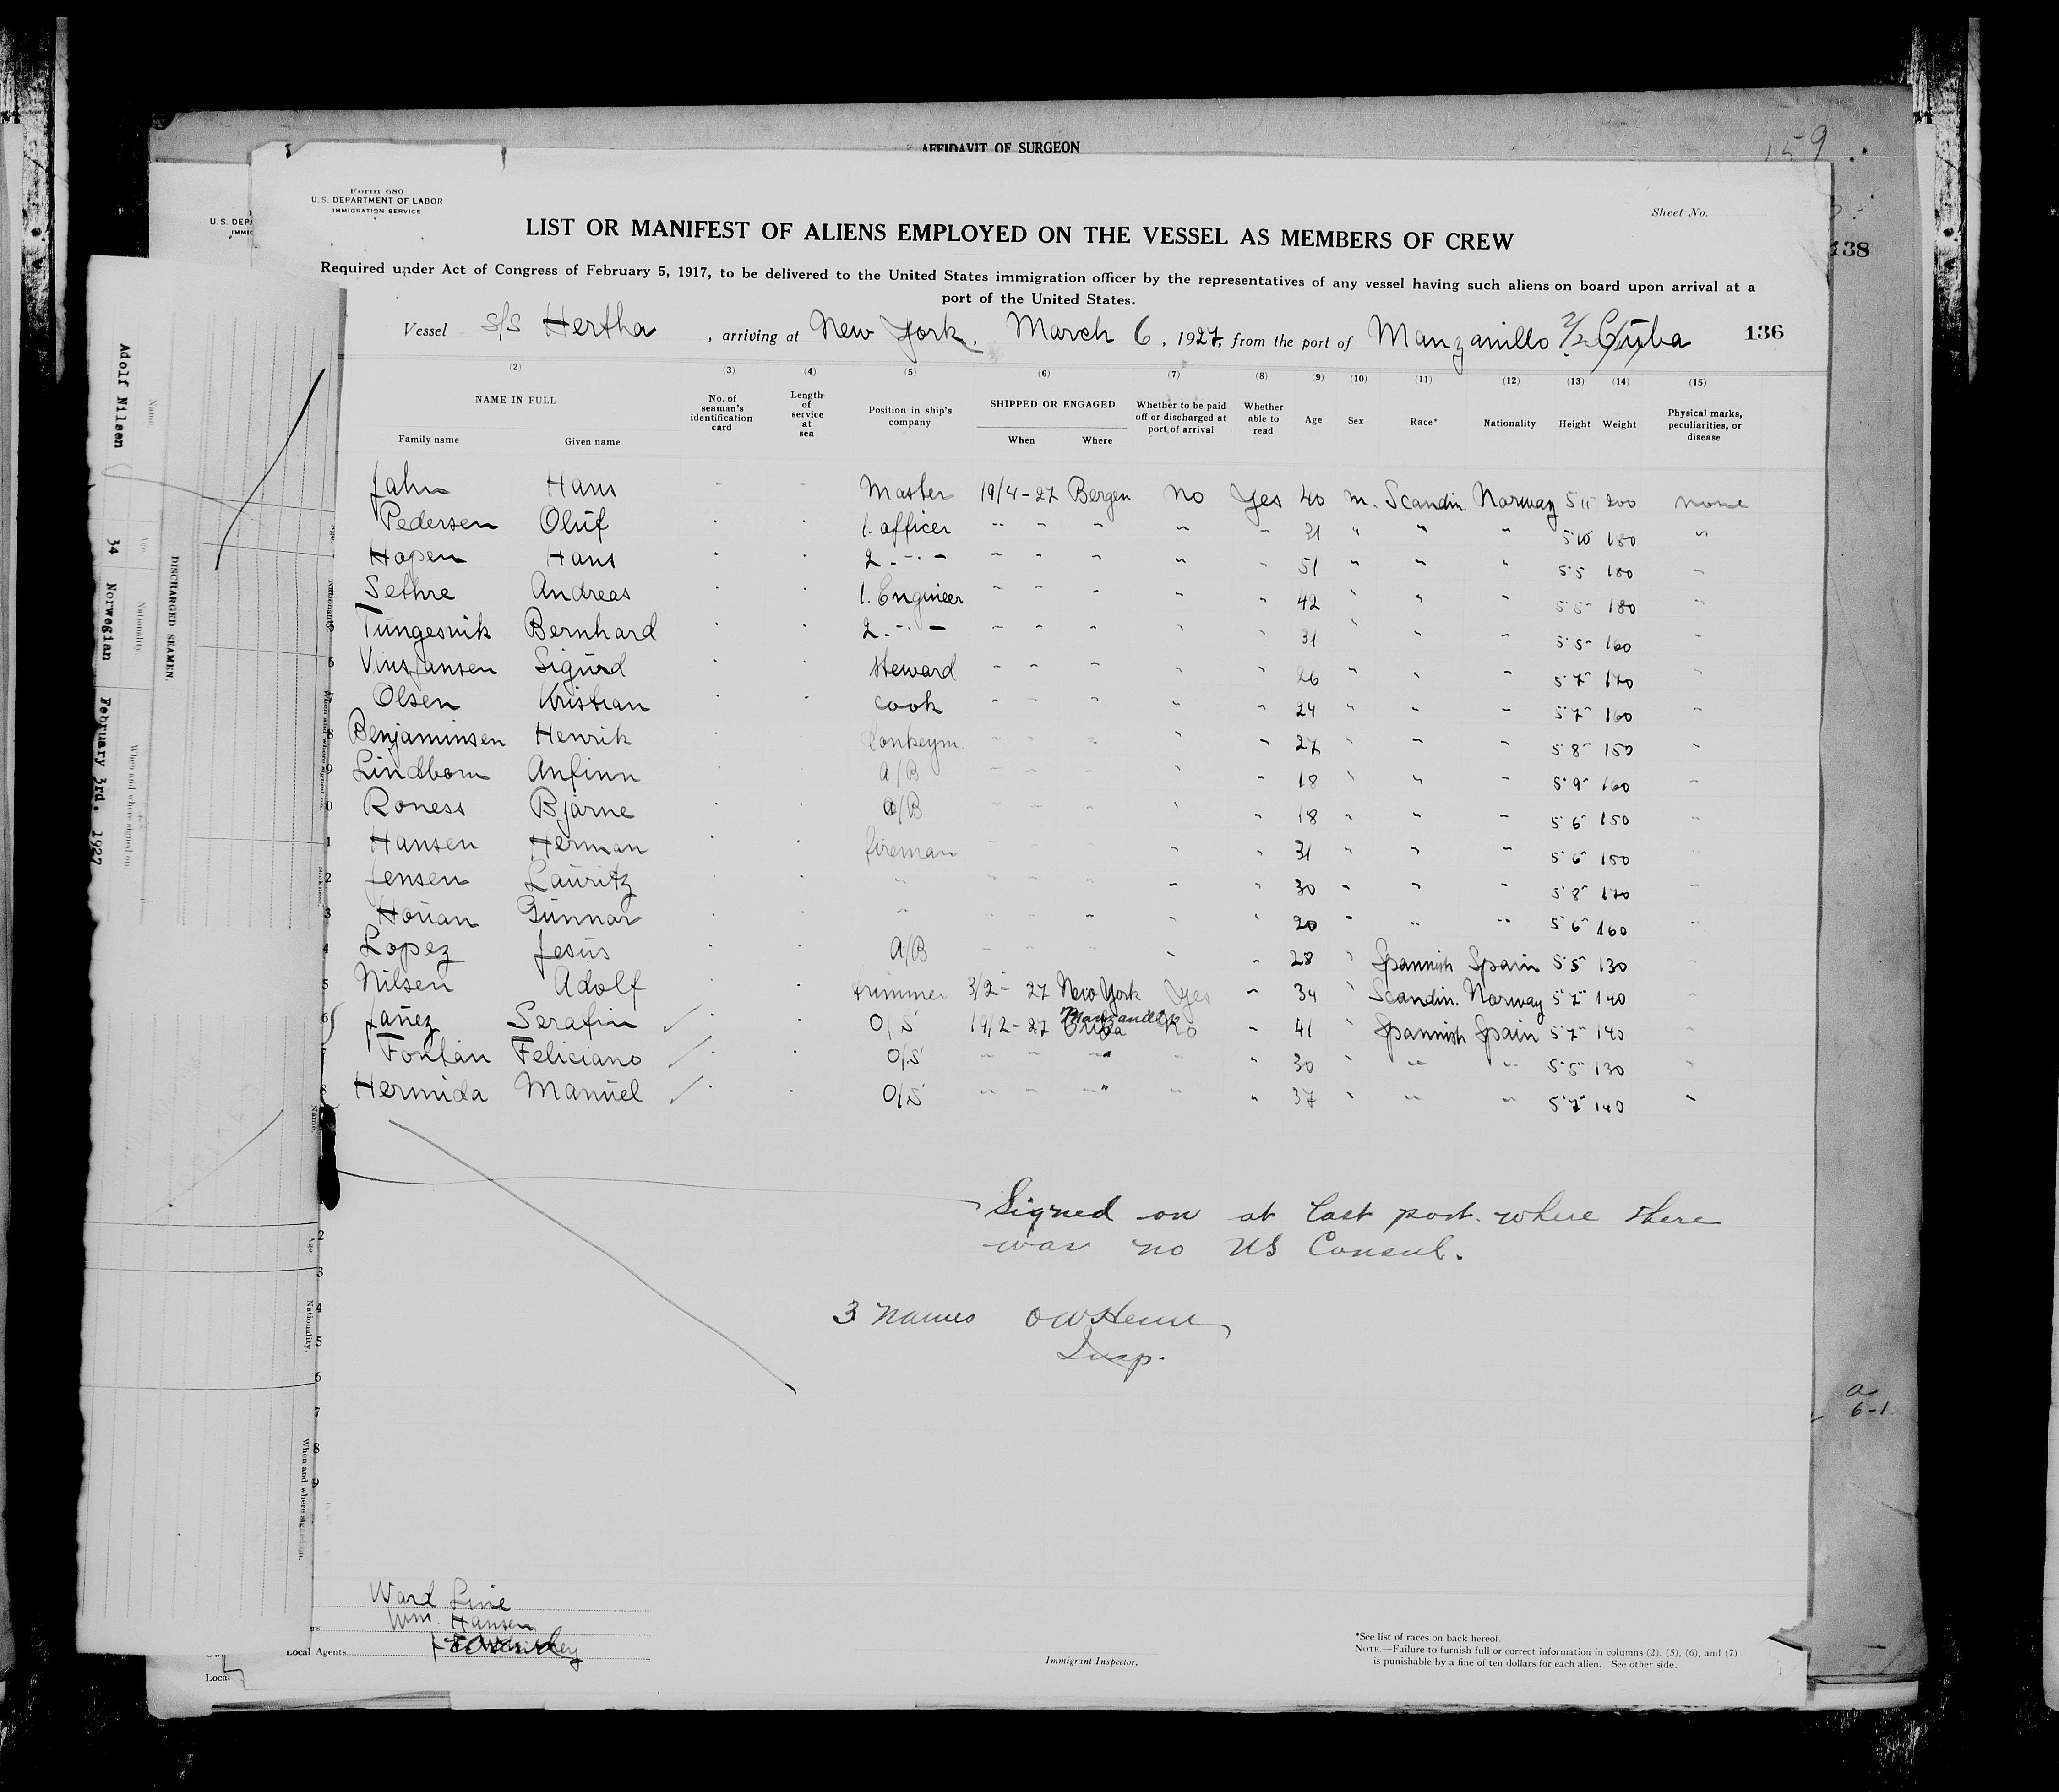 AFFIDAVIT OF SURGEON
159
Form 680
U.S. DEPARTMENT OF LABOR
IMMIGRATION SERVICE
Sheet No.
LIST OR MANIFEST OF ALIENS EMPLOYED ON THE VESSEL AS MEMBERS OF CREW
138
Required under Act of Congress of February 5, 1917, to be delivered to the United States immigration officer by the representatives of any vessel having such aliens on board upon arrival at a
port of the United States.
Vessel S/S Hertha, arriving at New York. March 6, 1927, from the port of Manzanillo Cuba 136
(2) (3) (4) (5) (6) (7) (8) (9) (10) (11) (12) (13) (14) (15)
NAME IN FULL
Family name Given name
No. of seaman's identification card
Length of service at sea
Position in ship's company
SHIPPED OR ENGAGED
When Where
Whether to be paid off or discharged at port of arrival
Whether able to read
Age Sex Race* Nationality Height Weight
Physical marks, peculiarities, or disease
Jahn Hans - - Master 19/4-27 Bergen No Yes 40 m. Scandin. Norway 5 11 200 none
Pedersen Oluf 1. officer " " " " " 31 " " " 5 10 180 "
Hopen Hans 2. -"- " " " " " 51 " " " 5 5 180 "
Sethre Andreas 1. Engineer " " " " " 42 " " " 5 5 180 "
Tungesvik Bernhard 2. -"- " " " " " 31 " " " 5 5 160 "
Sigurd Steward " " " " " 26 " " " 5 7 170 "
Olsen Kristian cook " " " " " 24 " " " 5 7 160 "
Benjaminsen Henrik donkeym. " " " " " 27 " " " 5 8 150 "
Lindbom Anfinn A/B " " " " " 18 " " " 5 9 160 "
Roness Bjarne A/B " " " " " 18 " " " 5 6 150 "
Hansen Herman fireman " " " " " 31 " " " 5 6 150 "
Jensen Lauritz " " " " " " 30 " " " 5 8 170 "
Gunnar " " " " " " 20 " " " 5 6 160 "
Lopez Jesus A/B " " " " " 28 " Spannish Spain 5 5 130 "
Nilsen Adolf trimmer 3/2-27 New York Yes " 34 " Scandin. Norway 5 7 140 "
Janez Serafin O/S 19/2-27 Manzanillo Cuba No " 41 " Spannish Spain 5 7 140 "
Fontan Feliciano O/S " " " " " 30 " " " 5 5 130 "
Hermida Manuel O/S " " " " " 37 " " " 5 7 140 "
Signed on at last port where there
was no US Consul.
3 names
Insp.
a
6-1
Ward Line
Wm. Hansen
Local Agents
Immigrant Inspector.
*See list of races on back hereof.
NOTE.—Failure to furnish full or correct information in columns (2), (5), (6), and (7)
is punishable by a fine of ten dollars for each alien. See other side.
Local
DISCHARGED SEAMEN.
Name. Age. Nationality. When and where signed on.
Adolf Nilsen 34 Norwegian February 3rd. 1927
Name. Age. Nationality. When and where signed on.